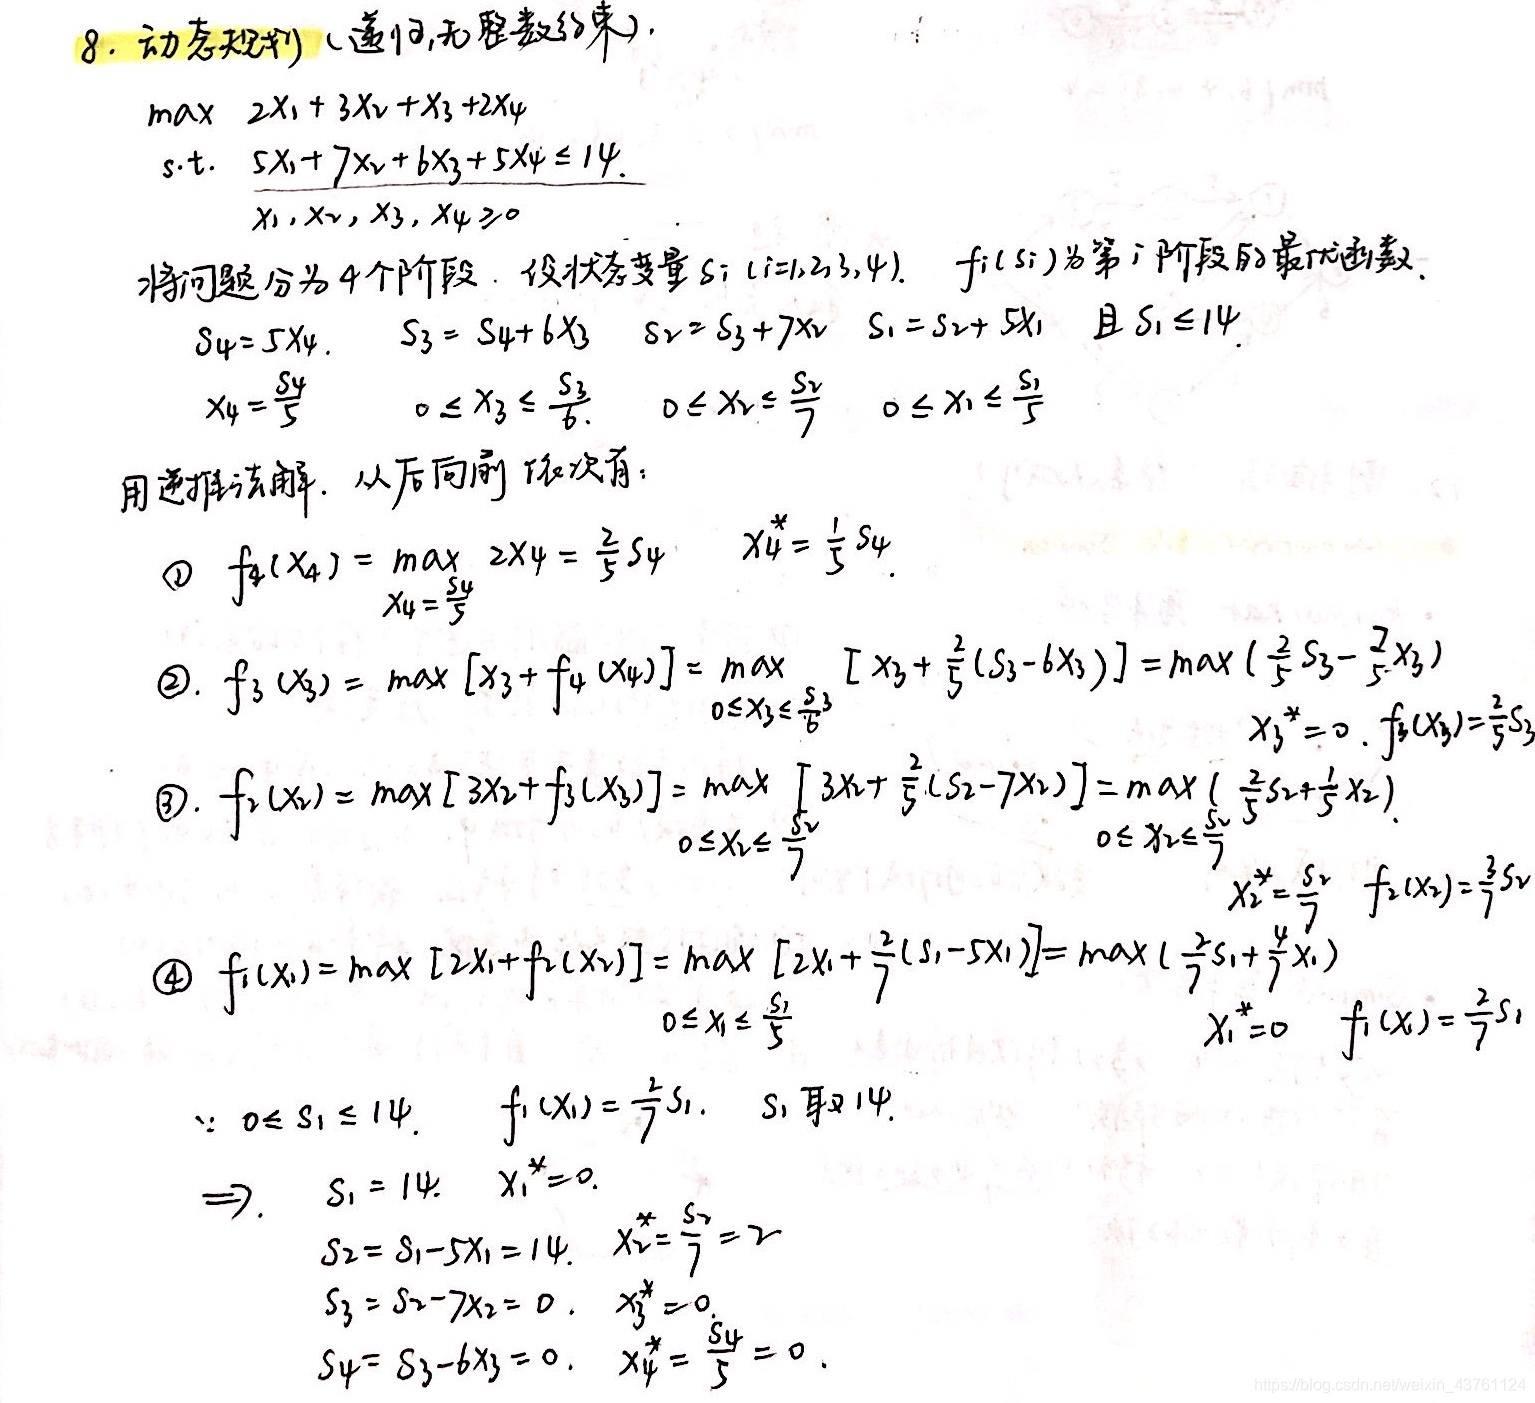 8. 动态规划 (递归,无整数约束).
max 2x₁+3x₂+x₃+2x₄
s.t. 5x₁+7x₂+6x₃+5x₄≤14.
x₁,x₂,x₃,x₄≥0
将问题分为4个阶段. 设状态变量 Si (i=1,2,3,4). fi(Si)为第i阶段的最优函数.
S₄=5x₄. S₃=S₄+6x₃ S₂=S₃+7x₂ S₁=S₂+5x₁ 且 S₁≤14.
x₄=S₄/5 0≤x₃≤S₃/6. 0≤x₂≤S₂/7 0≤x₁≤S₁/5
用逆推法解. 从后向前依次有:
① f₄(x₄)=max 2x₄=2/5 S₄ x₄*=1/5 S₄.
x₄=S₄/5
②. f₃(x₃)=max[x₃+f₄(x₄)]=max [x₃+2/5(S₃-6x₃)]=max(2/5 S₃-7/5 x₃)
0≤x₃≤S₃/6
x₃*=0. f₃(x₃)=2/5 S₃
③. f₂(x₂)=max[3x₂+f₃(x₃)]=max [3x₂+2/5(S₂-7x₂)]=max(2/5 S₂+1/5 x₂).
0≤x₂≤S₂/7 0≤x₂≤S₂/7
x₂*=S₂/7 f₂(x₂)=3/7 S₂
④ f₁(x₁)=max[2x₁+f₂(x₂)]=max [2x₁+2/7(S₁-5x₁)]=max(2/7 S₁+4/7 x₁)
0≤x₁≤S₁/5
x₁*=0 f₁(x₁)=2/7 S₁
∵ 0≤S₁≤14. f₁(x₁)=2/7 S₁. S₁取14.
⇒. S₁=14. x₁*=0.
S₂=S₁-5x₁=14. x₂*=S₂/7=2
S₃=S₂-7x₂=0. x₃*=0.
S₄=S₃-6x₃=0. x₄*=S₄/5=0.
https://blog.csdn.net/weixin_43761124